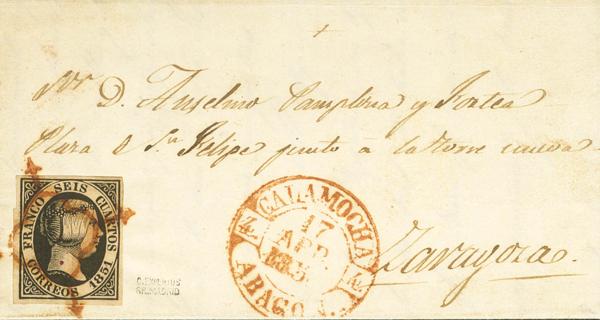 +
Sor. D. Anselmo Pamplona y Fortea
Plaza de Sn. Felipe junto á la torre nueva
Zaragoza.
FRANCO SEIS CUARTOS
CORREOS 1851
CALAMOCHA
17
ABR
ARAGON.
MADRID